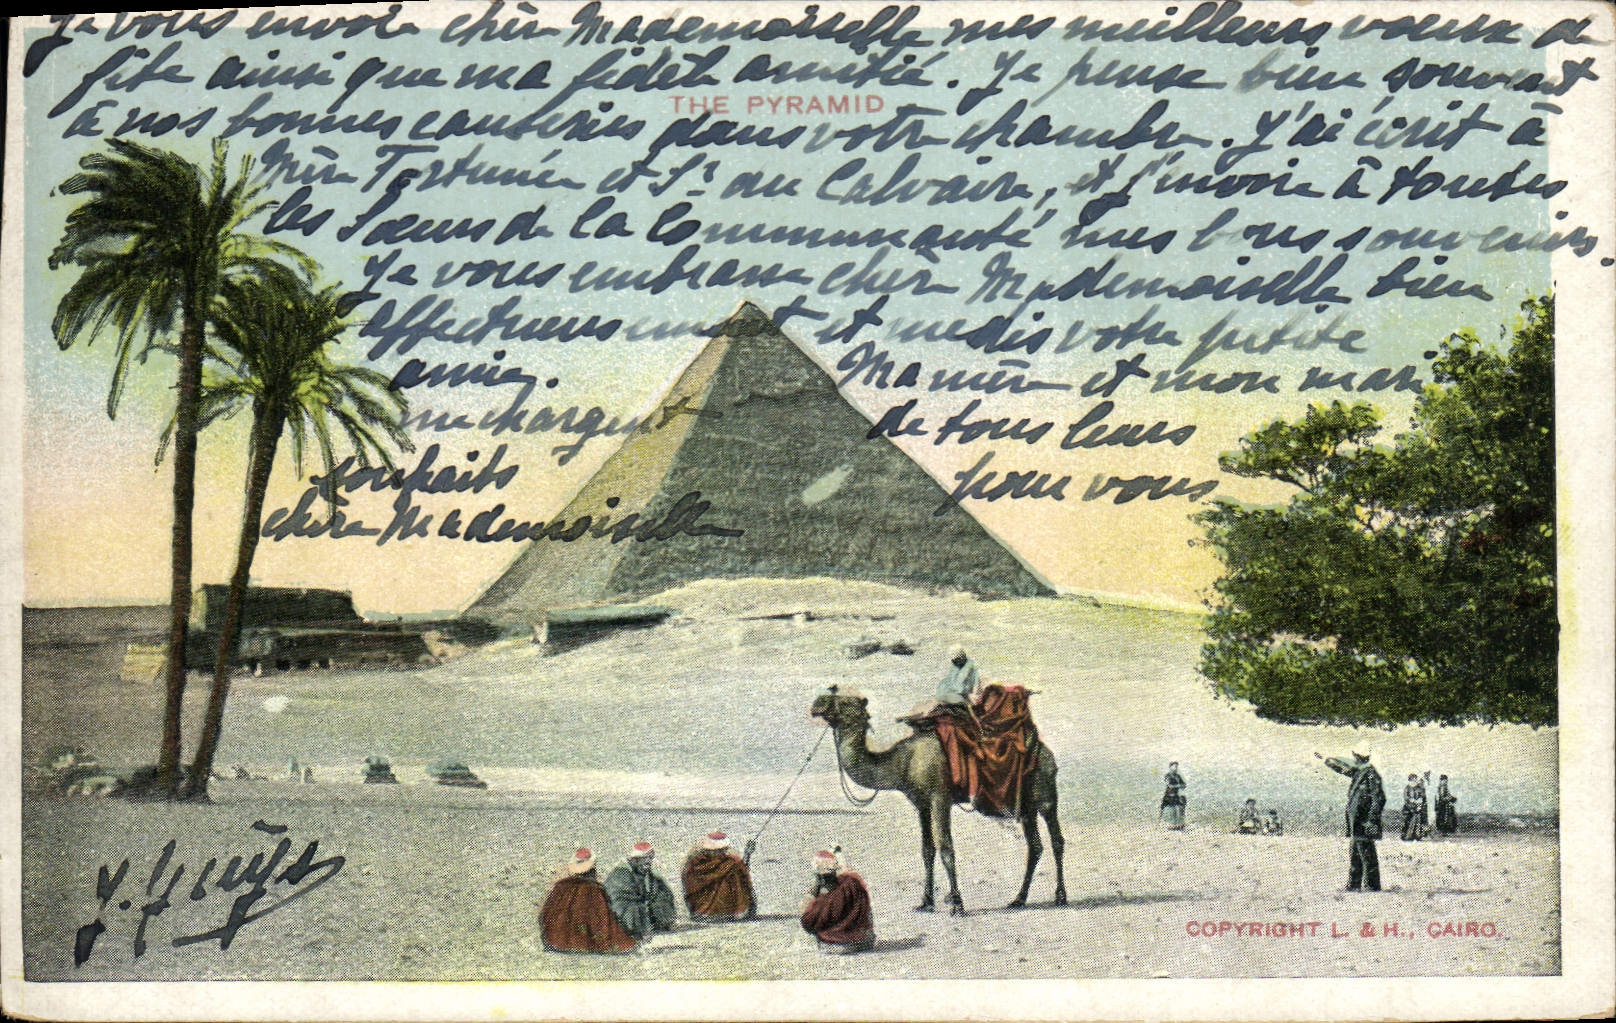 Je vous envoie chère Mademoiselle mes meilleurs voeux de
fête ainsi que ma fidèle amitié. Je pense bien souvent
THE PYRAMID
à nos bonnes causeries dans votre chambre. J'ai écrit à
Mère Fortunée et Sr du Calvaire, et j'envoie à toutes
les Soeurs de la Communauté mes bons souvenirs.
Je vous embrasse chère Mademoiselle bien
affectueusement et me dis votre petite
amie. Ma mère et mon mari
me chargent de tous leurs
souhaits pour vous
chère Mademoiselle
J.
COPYRIGHT L. & H., CAIRO.